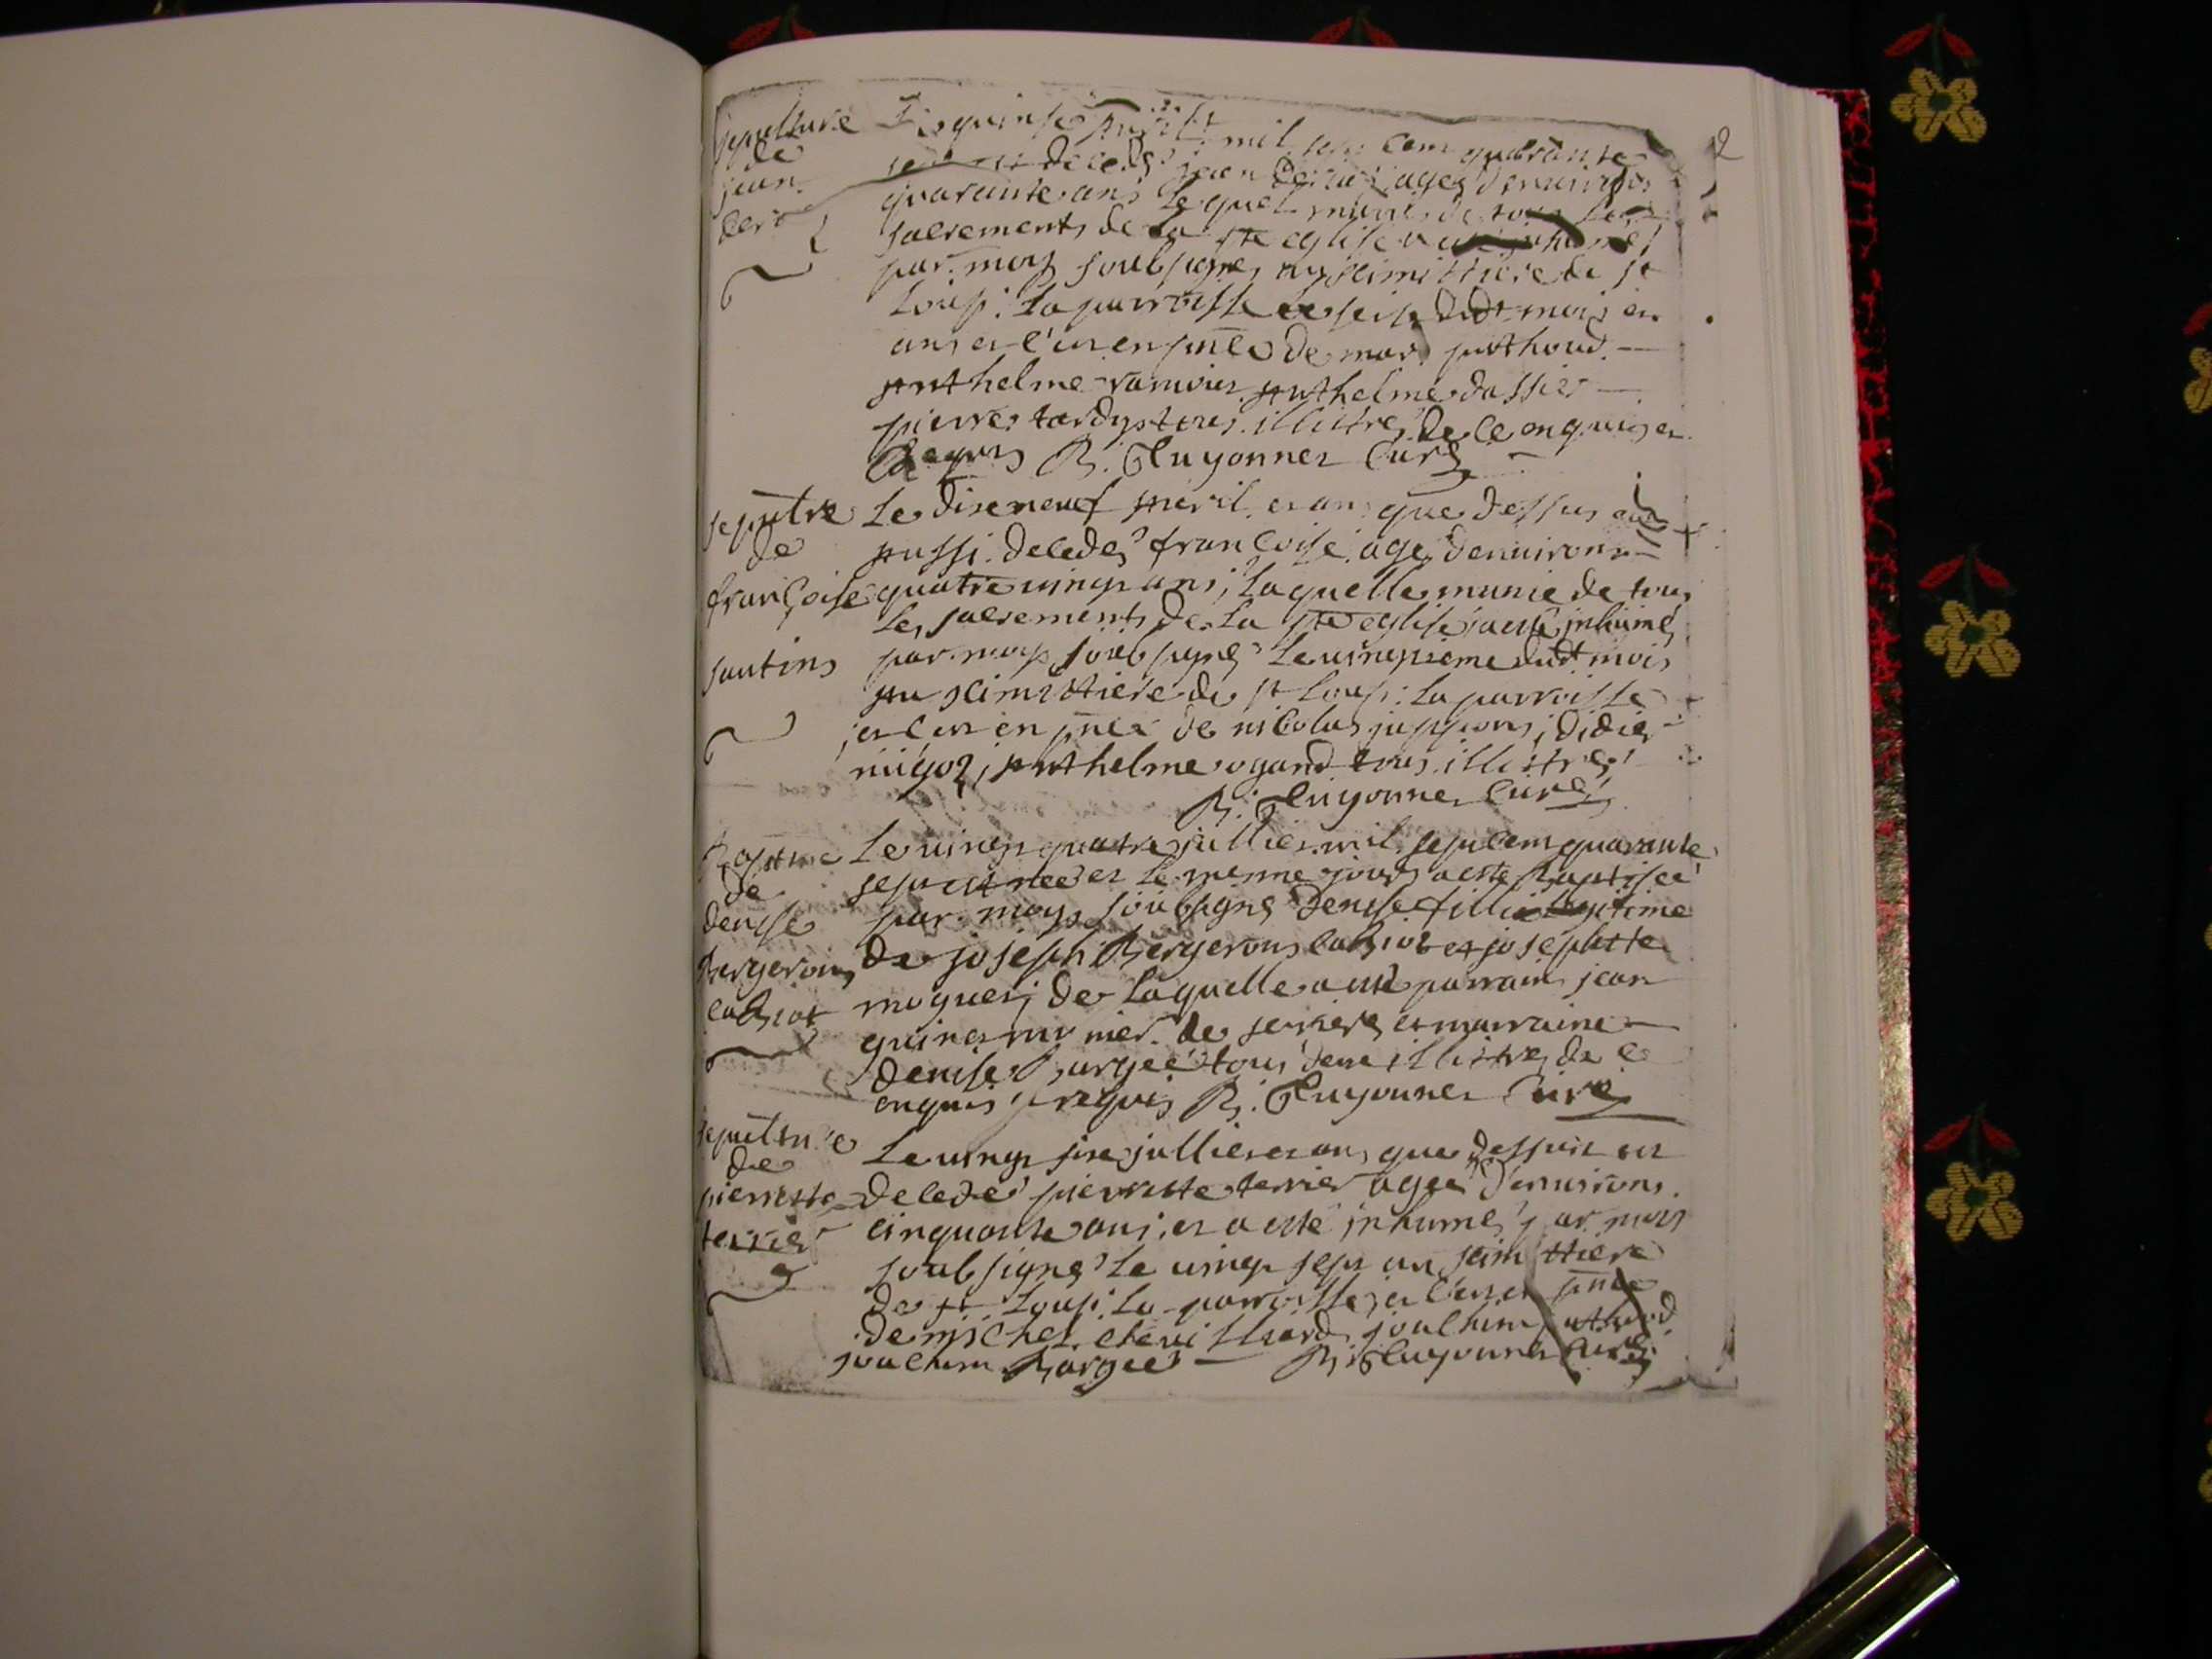 2
sepulture
de
jean
Le quinse mil sept cent quarante
decedé jean agé d'environs
quarante ans Lequel munis de tous les
sacrements de La ste eglise a esté inhumé
par moy soubsigné au scimittiere de st
Loup: La parroisse le seise dudt mois et
an; et c'est en pnce de
anthelme anthelme dassier
pierre tardy tous illitrés de ce enquis et
requis R. Cuyonnet Curé
sepultre
de
françoise
santins
Le dixneuf avril et an que dessus est
aussi decedés françoise agé denvirons
quatre vingt ans; laquelle munie de tous
Les sacrements de La ste eglise a esté inhumé
par moy soubsigné Le vingtieme dudt mois
au scimittiere de st Loup: La parroisse
et c'est en pnce de nicolas juppons; didier
migoz; anthelme ogand tous illitrés
R. Cuyonnet Curé
Baptme
de
denise
Bergerons
cabriot
Le vingt quatre julliet mil sept cent quarante
sept est née et Le meme jour a esté Baptisée
par moy soubsigné denise fille legitime
de joseph Bergerons cabriot et josephtte
moguet; de Laquelle a esté parrain jean
de et marraine
denise Bargee tous deux illitrés de ce
enquis requis R. Cuyonnet Curé
sepulture
de
pierrette
terrier
Le vingt six julliet et an que dessus est
decedé pierrette terrier agée d'environs
cinquante ans; et a esté inhumé par moy
soubsigné Le vingt sept au scimittiere
de st Loup: La parroisse; et c'est en pnce
de michel chevilliard joachim
joachim Bargee R. Cuyonnet Curé